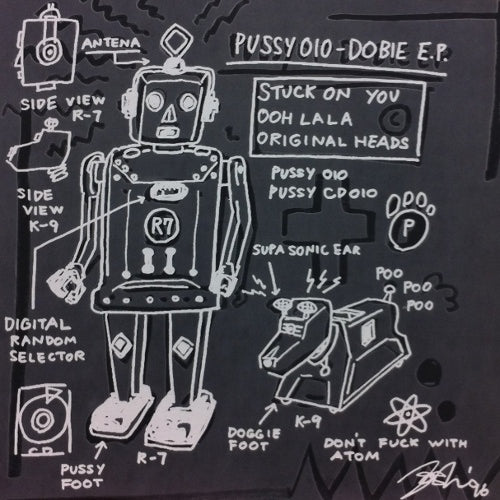 ANTENA
PUSSY 010-DOBIE E.P.
SIDE VIEW
R-7
STUCK ON YOU
OOH LALA
ORIGINAL HEADS
C
PUSSY 010
PUSSY CD010
P
SIDE
VIEW
K-9
R7
SUPA SONIC EAR
POO
POO
POO
DIGITAL
RANDOM
SELECTOR
CD
K-9
DOGGIE
FOOT
DON'T FUCK WITH
ATOM
R-7
PUSSY
FOOT